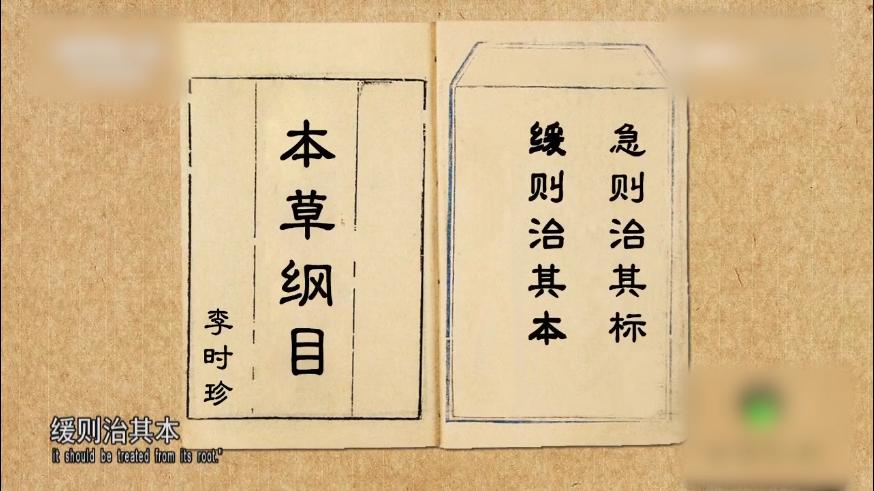 急则治其标
缓则治其本
本草纲目
李时珍
缓则治其本
it should be treated from its root."